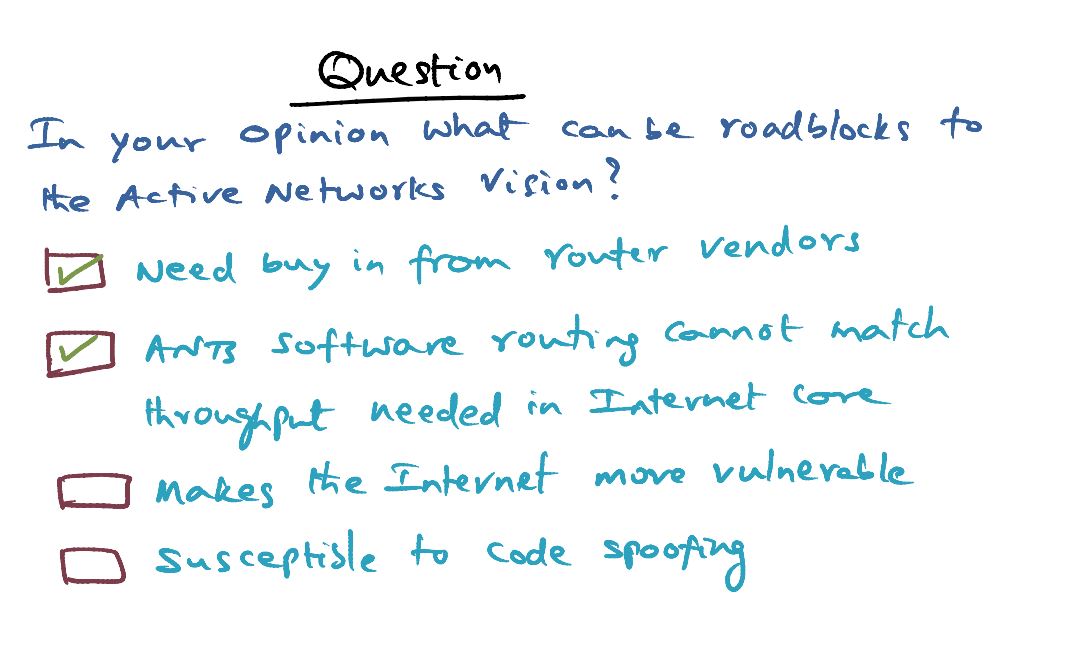 Question
In your opinion what can be roadblocks to
the Active Networks vision?
Need buy in from router vendors
ANTS software routing cannot match
throughput needed in Internet core
Makes the Internet more vulnerable
Susceptible to code spoofing